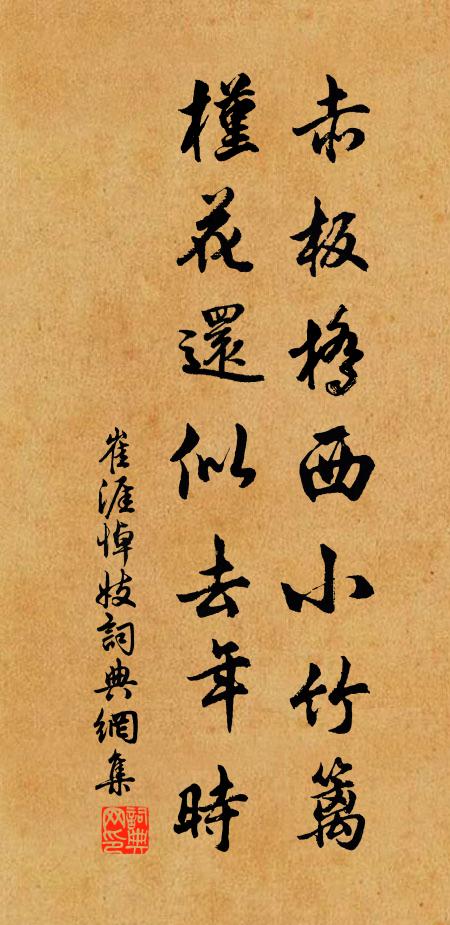 赤板橋西小竹籬
槿花還似去年時
崔涯悼妓詞典網集
詞典网印